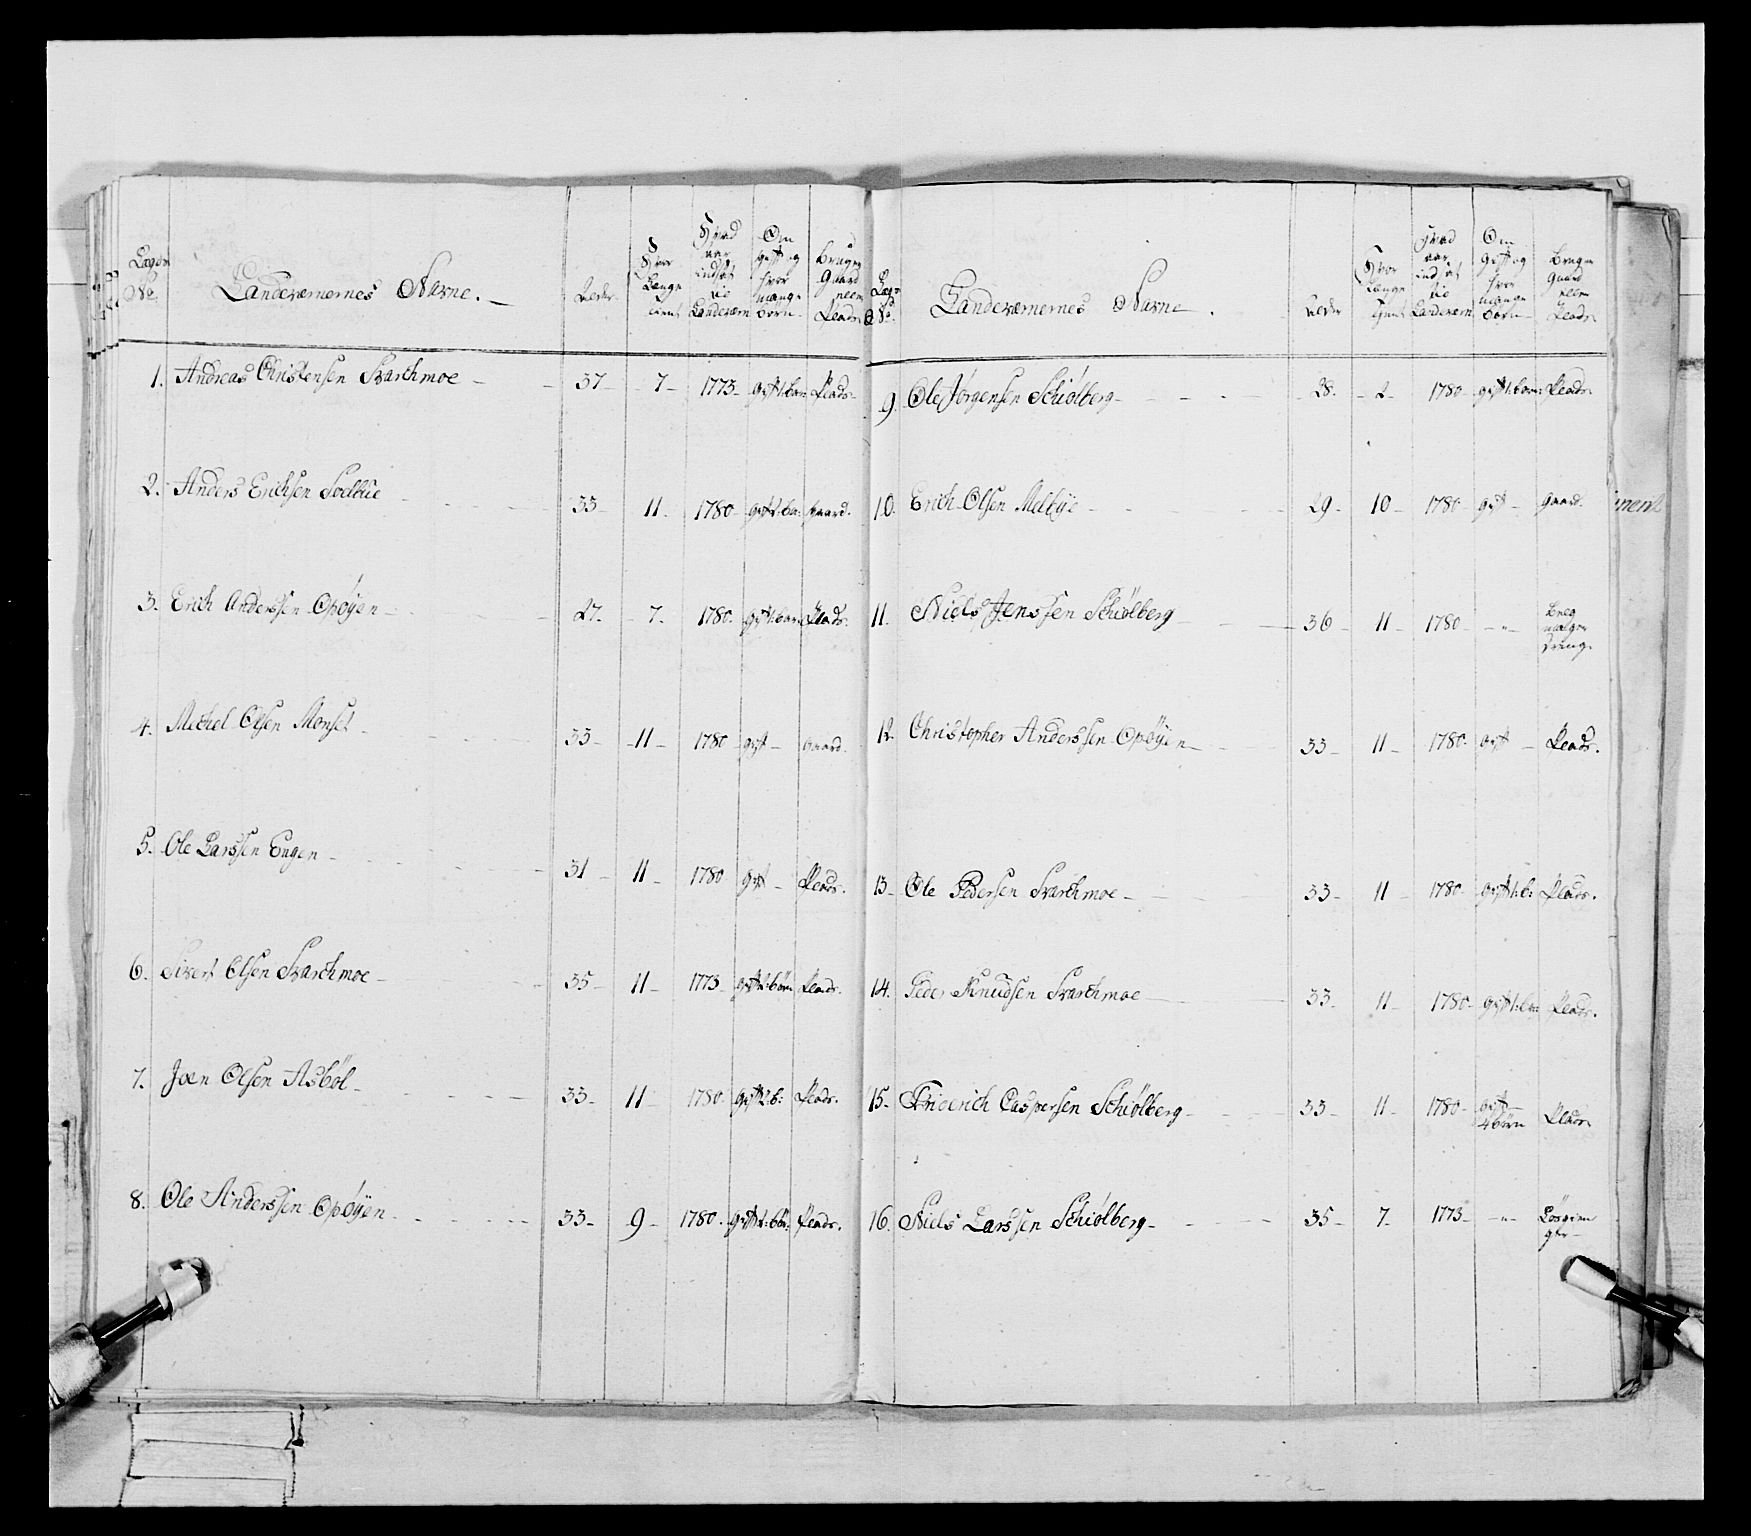 Lægds No. Landeværnernes Navne. Alder. Hvor Længe tient Hvad aar indsat tie Landeværn Om gift og hvor mange börn Bruger Gaard eller Plads
1. Andreas Christensen Svarthmoe - 37 - 7 - 1773 - gift 1: barn Plads.
2. Anders Erichsen Soelbue 33 - 11 - 1780 - gift 1: ba: Gaard.
3. Erich Anderssen Opøÿen - 27 - 7 - 1780 - gift 1: barn Plads.
4. Michel Olsen Monset 33 - 11 - 1780 - gift - Gaard.
5. Ole Larssen Engen - 31 - 11 - 1780 gift - Plads.
6. Sivert Olsen Svarthmoe - 35 - 11 - 1773 gift 2: börn Plads.
7. Joen Olsen Asböl - 33 - 11 - 1780 gift 2: b: Plads.
8. Ole Anderssen Opøÿen - 33 - 9 - 1780 - gift 2: bö: Plads.
Lægds No. Landeværnernes Navne. Alder Hvor Længe tient Hvad aar ind sat tie Landeværn Om gift og hvor mange börn Bruger gaard eller Plads
9. Ole Jörgensen Schiölberg - 28 - 2 - 1780 gift 1: barn: Plads.
10. Erich Olsen Melbÿe - 29 - 10 - 1780 gift - Gaard.
11. Niels Jenssen Schiölberg - 36 - 11 - 1780 - " -
12. Christopher Anderssen Opøÿen - 33 - 11 - 1780 - gift - Plads.
13. Ole Pedersen Svarthmoe - 33 - 11 - 1780 - gift 1: b: Plads.
14. Peder Knudsen Svarthmoe 33 - 11 - 1780 - gift 1: ba: Plads.
15. Friderich Caspersen Schiölberg - 33 - 11 - 1780 - gift 4 börn Plads
16. Niels Larssen Schiölberg - 35 - 7 - 1773 - " -